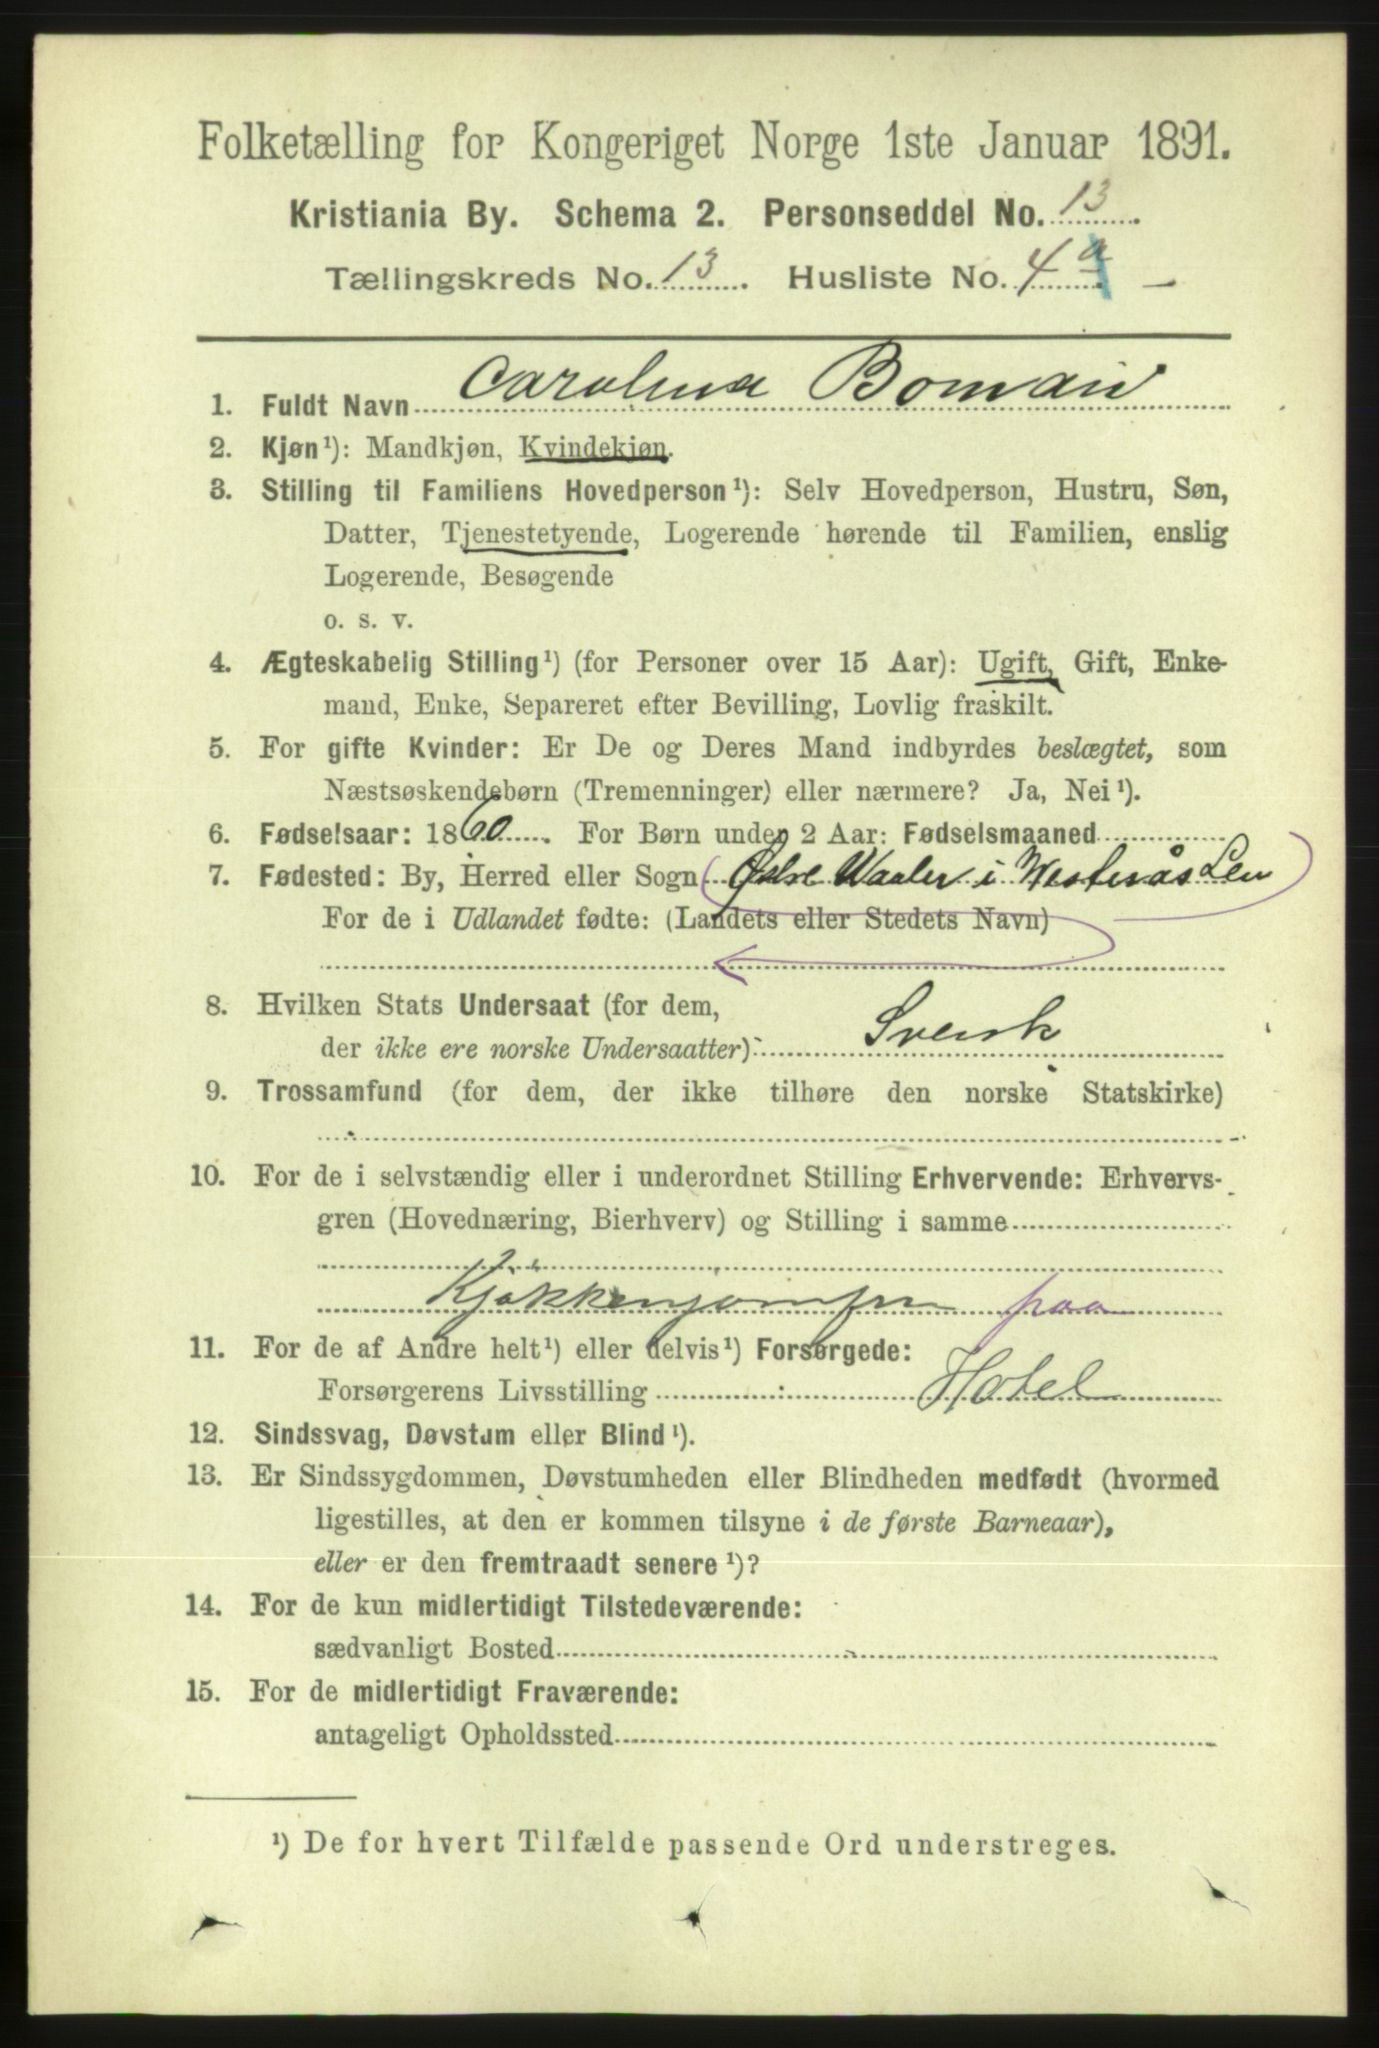 Folketælling for Kongeriget Norge 1ste Januar 1891.
Kristiania By. Schema 2. Personseddel No. 13.
Tællingskreds No. 13. Husliste No. 4 a
1. Fuldt Navn Carolina Boman
2. Kjøn¹): Mandkjøn, Kvindekjøn.
3. Stilling til Familiens Hovedperson¹): Selv Hovedperson, Hustru, Søn,
Datter, Tjenestetyende, Logerende hørende til Familien, enslig
Logerende, Besøgende
o. s. v.
4. Ægteskabelig Stilling¹) (for Personer over 15 Aar): Ugift, Gift, Enke-
mand, Enke, Separeret efter Bevilling, Lovlig fraskilt.
5. For gifte Kvinder: Er De og Deres Mand indbyrdes beslægtet, som
Næstsøskendebørn (Tremenninger) eller nærmere? Ja, Nei¹).
6. Fødselsaar: 1860. For Børn under 2 Aar: Fødselsmaaned
7. Fødested: By, Herred eller Sogn Waaler i Westerås Len
For de i Udlandet fødte: (Landets eller Stedets Navn)
8. Hvilken Stats Undersaat (for dem,
der ikke ere norske Undersaatter): Svensk
9. Trossamfund (for dem, der ikke tilhøre den norske Statskirke)
10. For de i selvstændig eller i underordnet Stilling Erhvervende: Erhvervs-
gren (Hovednæring, Bierhverv) og Stilling i samme
Kjökkenjomfru paa
11. For de af Andre helt¹) eller delvis¹) Forsørgede:
Forsørgerens Livsstilling Hotel
12. Sindssvag, Døvstum eller Blind¹).
13. Er Sindssygdommen, Døvstumheden eller Blindheden medfødt (hvormed
ligestilles, at den er kommen tilsyne i de første Barneaar),
eller er den fremtraadt senere¹)?
14. For de kun midlertidigt Tilstedeværende:
sædvanligt Bosted
15. For de midlertidigt Fraværende:
antageligt Opholdssted
¹) De for hvert Tilfælde passende Ord understreges.